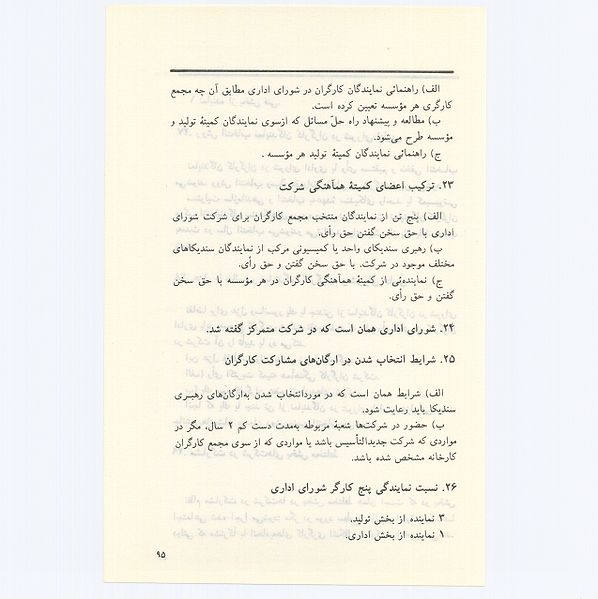 الف) راهنمائی نمایندگان کارگران در شورای اداری مطابق آن چه مجمع
کارگری هر مؤسسه تعیین کرده است.
ب) مطالعه و پیشنهاد راه حلّ مسائل که ازسوی نمایندگان کمیتهٔ تولید و
مؤسسه طرح می‌شود.
ج) راهنمائی نمایندگان کمیتهٔ تولید هر مؤسسه .
۲۳. ترکیب اعضای کمیتهٔ هم‌آهنگی شرکت
الف) پنج تن از نمایندگان منتخب مجمع کارگران برای شرکت شورای
اداری با حق سخن گفتن حق رأی.
ب) رهبری سندیکای واحد یا کمیسیونی مرکب از نمایندگان سندیکاهای
مختلف موجود در شرکت. با حق سخن گفتن و حق رأی.
ج) نماینده‌ئی از کمیتهٔ هم‌آهنگی کارگران در هر مؤسسه با حق سخن
گفتن و حق رأی.
۲۴. شورای اداری همان است که در شرکت متمرکز گفته شد.
۲۵. شرایط انتخاب شدن در ارگان‌های مشارکت کارگران
الف) شرایط همان است که در موردانتخاب شدن به‌ارگان‌های رهبری
سندیکا باید رعایت شود.
ب) حضور در شرکت‌ها شعبهٔ مربوطه به‌مدت دست کم ۲ سال، مگر در
مواردی که شرکت جدیدالتأسیس باشد یا مواردی که از سوی مجمع کارگران
کارخانه مشخص شده باشد.
۲۶. نسبت نمایندگی پنج کارگر شورای اداری
۳ نماینده از بخش تولید.
۱ نماینده از بخش اداری.
۹۵